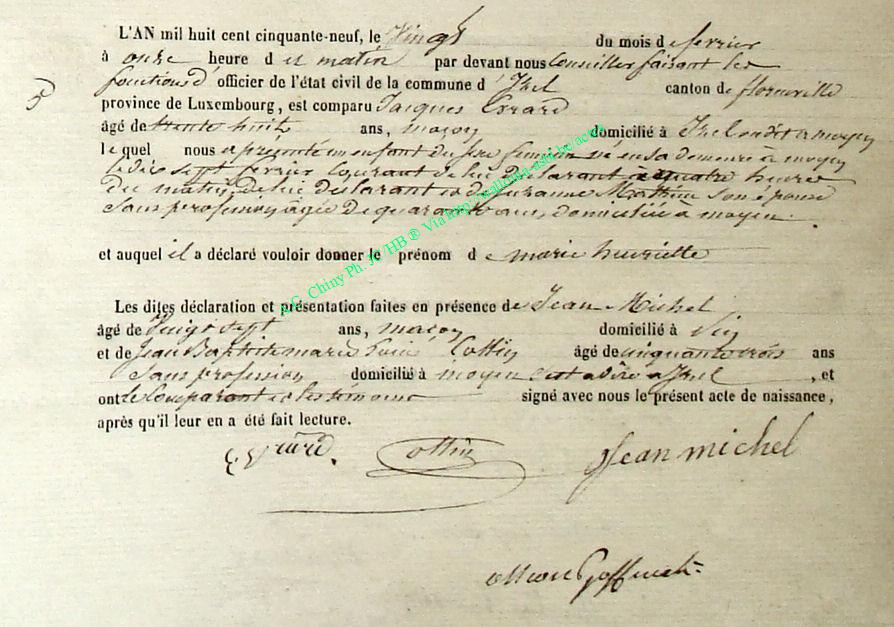 L'AN mil huit cent cinquante-neuf, le Vingt du mois de fevrier
à onze heure du matin par devant nous Conseiller faisant les
5 fonctions d' officier de l'état civil de la commune d' Izel canton de florenville
province de Luxembourg, est comparu Jacques Evrard
âgé de trente huit ans, maçon domicilié à Izel endroit moyen
le quel nous a présenté un enfant du sexe feminin né en sa demeure à moyen
le dix sept fevrier courant de lui déclarant a quatre heures
du matin de lui déclarant et de Suzanne Mathieu son épouse
sans profession, agée de quarante ans, domiciliée a moyen.
et auquel il a déclaré vouloir donner le prénom de marie henriette
Les dites déclaration et présentation faites en présence de Jean Michel
âgé de Vingt sept ans, maçon domicilié à
et de Jean Baptiste marie Louis Collin âgé de cinquante trois ans
sans profession domicilié à moyen c'est a dire a Izel, et
ont le comparant et les témoins signé avec nous le présent acte de naissance,
après qu'il leur en a été fait lecture.
Evrard. Collin Jean michel
Goffinet
A.C. Chiny Ph. Jc/HB ® Via http://wallonia-asbl.be actes